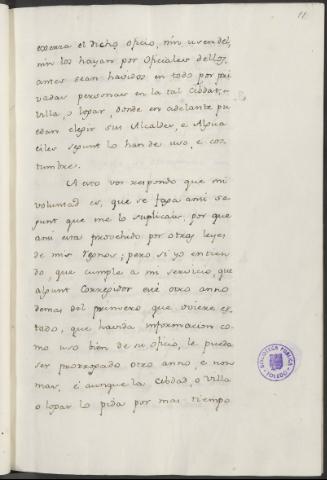 11
exerza el dicho oficio, nin usen del,
nin los hayan por Oficiales dellos,
antes sean havidos en todo por pri
vadas personas en la tal Cibdat, o
Villa, o logar, donde en adelante pue
dan elegir sus Alcaldes, e Algua
ciles segunt lo han de uso, e cos-
tumbre.
A esto vos respondo que mi
voluntad es, que se faga ansi se
gunt que me lo suplicais, por que
ansi esta provehido por otras leyes
de mis Regnos; pero si yo entien
do, que cumple a mi servicio, que
algunt Corregidor esté otro anno
demas del primero que oviere es-
tado, que havida informacion co-
mo uso bien de su oficio, le pueda
ser prorrogado otro anno, e non
mas, é aunque la Cibdad, o Villa
o logar lo pida por mas tiempo
BIBLIOTECA PUBLICA
TOLEDO